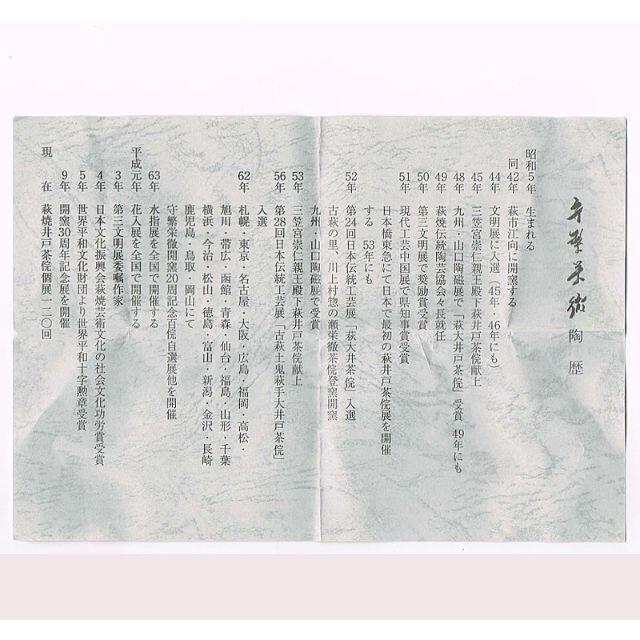 守繁栄徹 陶歴
昭和5年 生まれる
同42年 萩市江向に開窯する
44年 文明展に入選(45年・46年にも)
45年 三笠宮崇仁親王殿下萩井戸茶碗献上
48年 九州・山口陶磁展で「萩大井戸茶碗」受賞 49年にも
49年 萩焼伝統陶芸協会々長就任
50年 第三文明展で奨励賞受賞
51年 現代工芸中国展で県知事賞受賞
日本橋東急にて日本で最初の萩井戸茶碗展を開催
する 53年にも
52年 第24回日本伝統工芸展「萩大井戸茶碗」入選
古萩の里、川上村惣の瀬栄徹茶碗登窯開窯
九州・山口陶磁展で受賞
53年 三笠宮崇仁親王殿下萩井戸茶碗献上
56年 第28回日本伝統工芸展「古萩土鬼萩手大井戸茶碗」
入選
62年 札幌・東京・名古屋・大阪・広島・福岡・高松・
旭川・帯広・函館・青森・仙台・福島・山形・千葉
横浜・今治・松山・徳島・富山・新潟・金沢・長崎
鹿児島・鳥取・岡山にて
守繁栄徹開窯20周記念百碗自選展他を開催
63年 水指展を全国で開催する
平成元年 花入展を全国で開催する
3年 第三文明展委嘱作家
4年 日本文化振興会萩焼芸術文化の社会文化功労賞受賞
5年 世界平和文化財団より世界平和十字勲章受賞
9年 開窯30周年記念展を開催
現在 萩焼井戸茶碗個展一二〇回